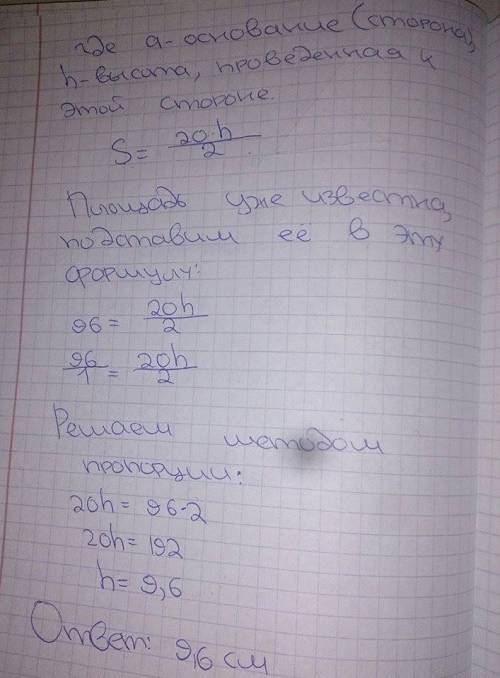 где a-основание (сторона),
h-высота, проведенная к
этой стороне.
S= 20·h/2
Площадь уже известна,
подставим её в эту
формулу:
96= 20h/2
96/1 = 20h/2
Решаем методом
пропорции:
20h= 96·2
20h= 192
h= 9,6
Ответ: 9,6 см